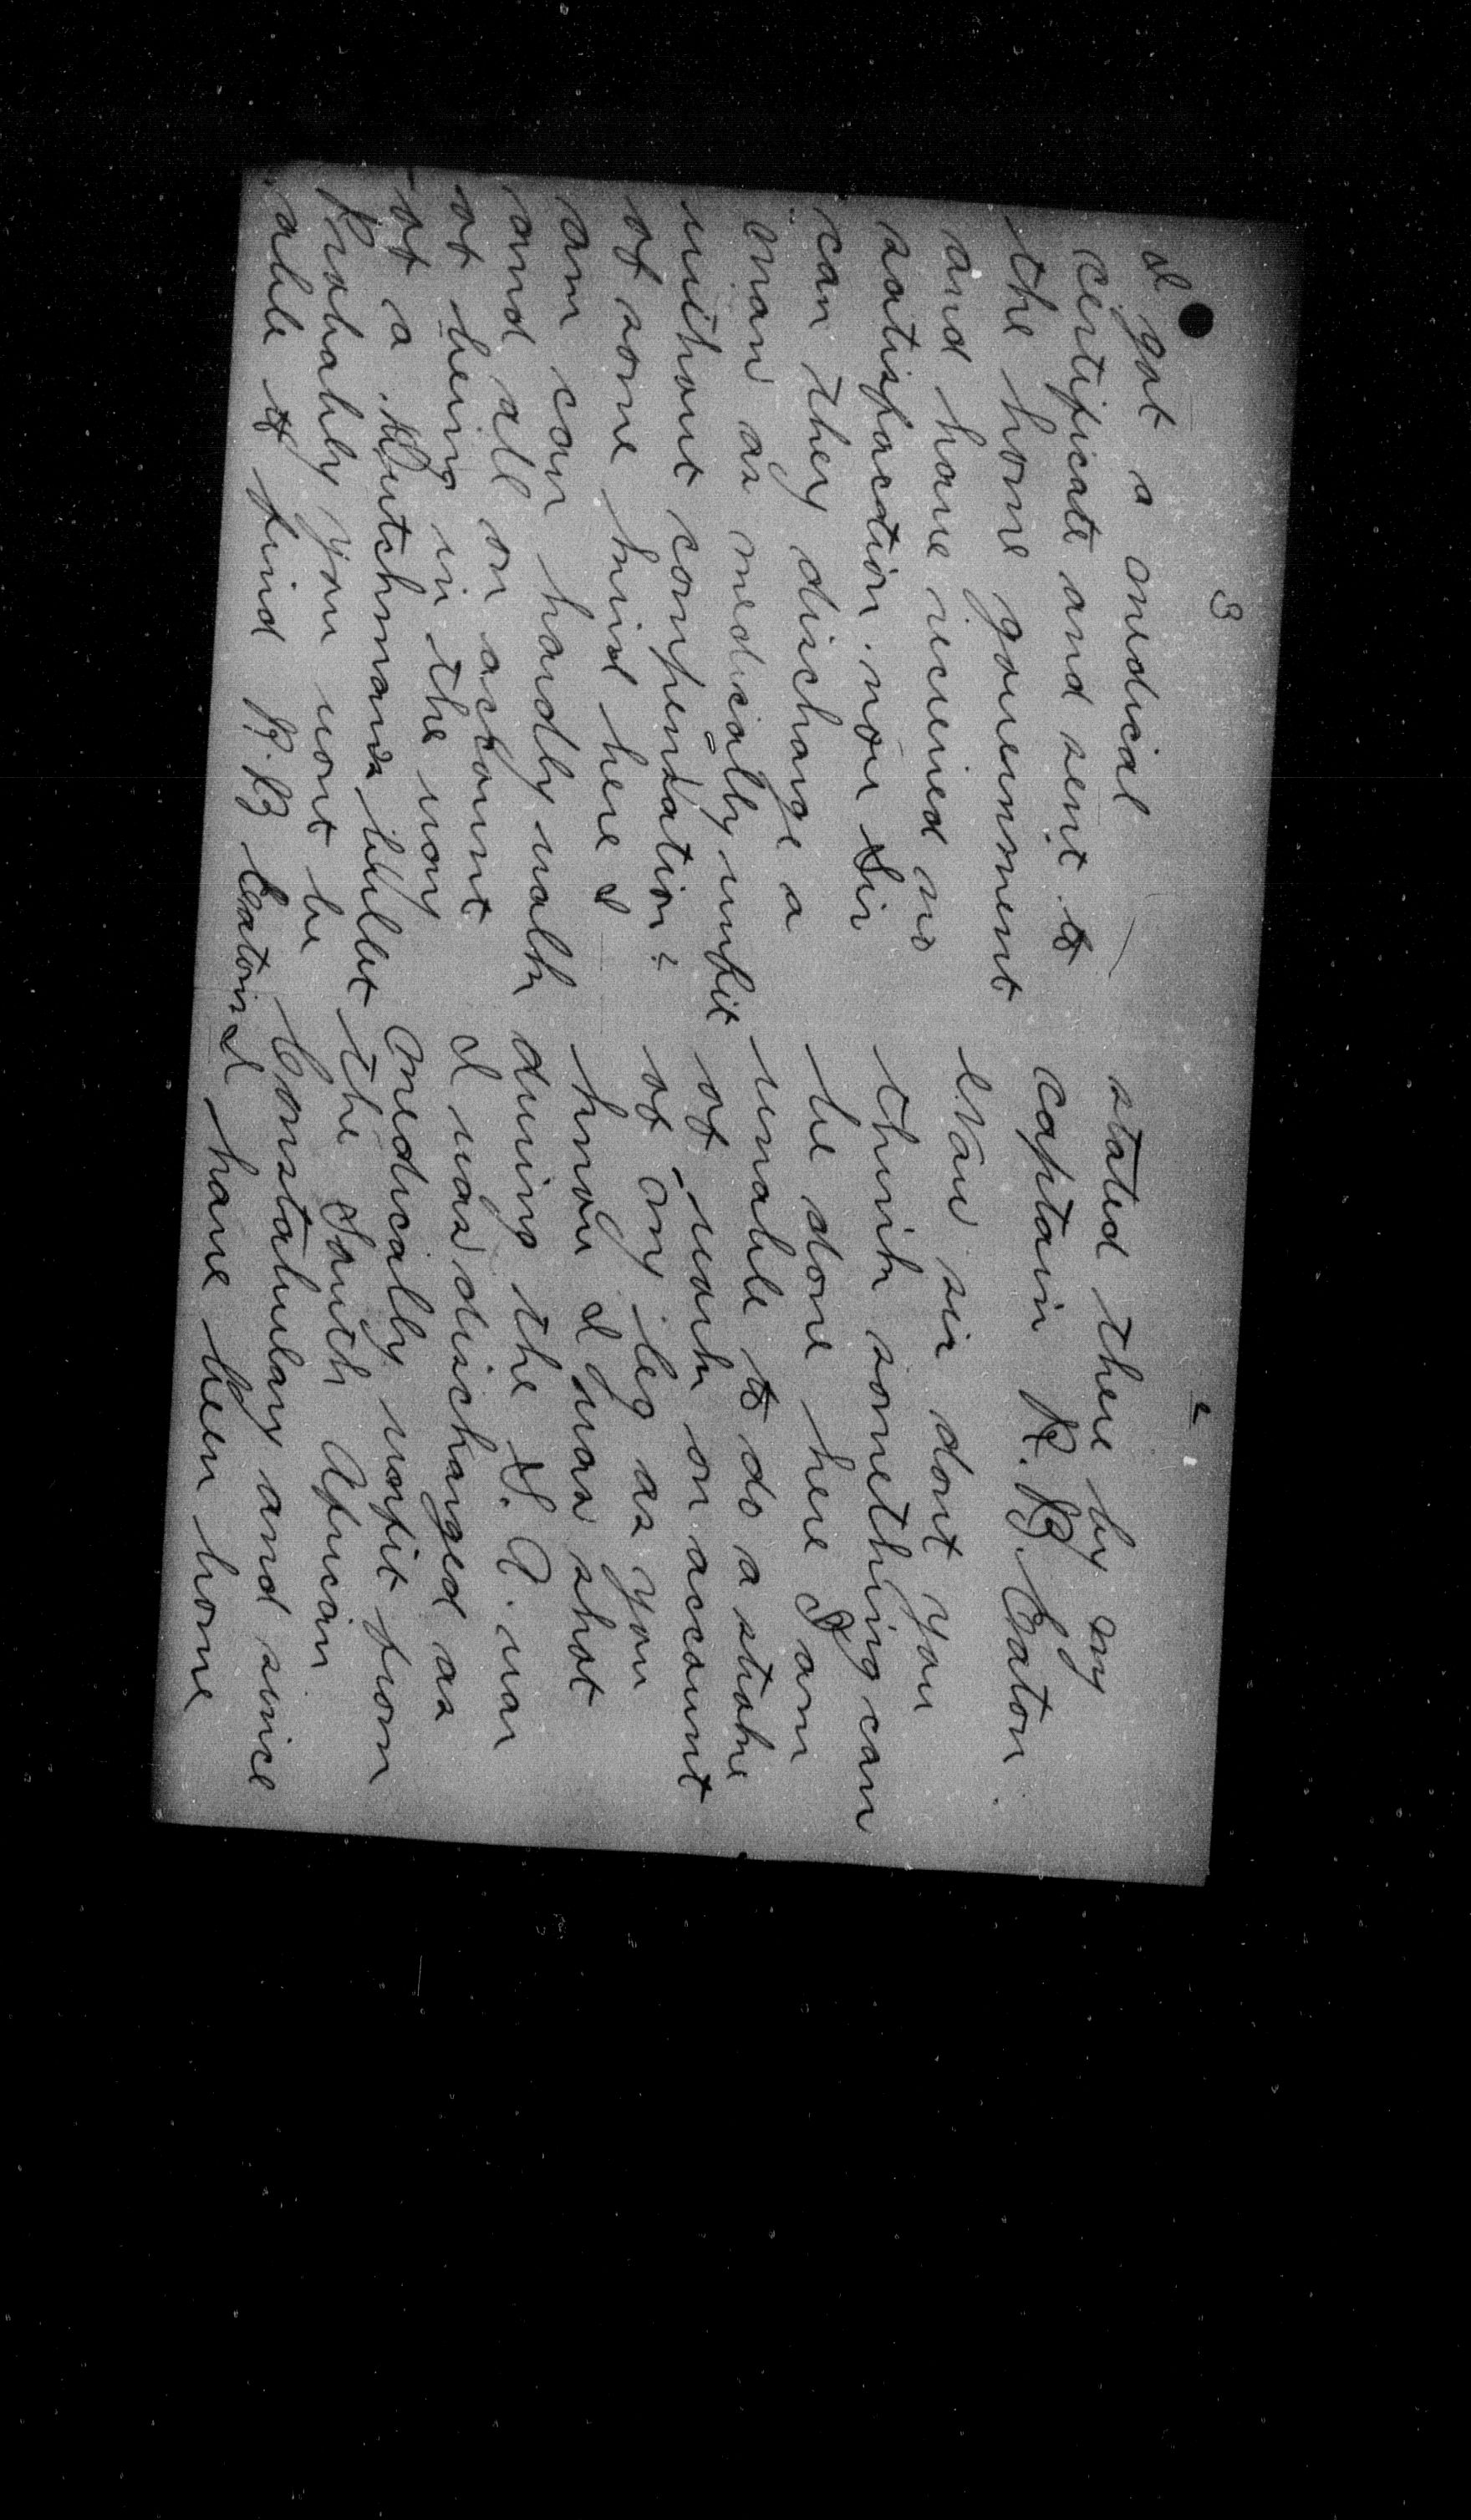 2
stated there by my
captain R. B. Eaton.
Now sir dont you
think something can
be done here I am
unable to do a stroke
of work on account
of my leg as you
know I was shot
during the S. A. war
I was discharged as
medically unfit from
the South African
Constabulary and since
I have been home
3
I got a medical
certificate and sent to
the home government
and have received no
satisfaction. now Sir
can they discharge a
man as medically unfit
without compensation
of some kind here I
am can hardly walk
and all on account
of being in the way
of a Dutchmans bullet
Probably you wont be
able to find R. B Eaton